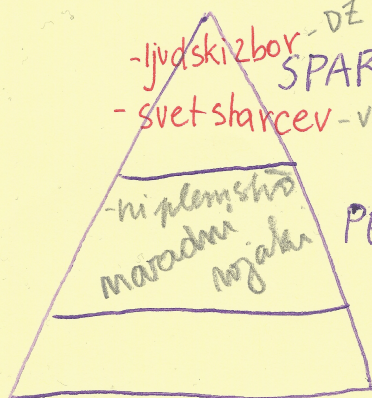 - DZ
- ljudski zbor
ŠPAR
- svet starcev - V
- ni plemstvo
navadni
vojaki
PE